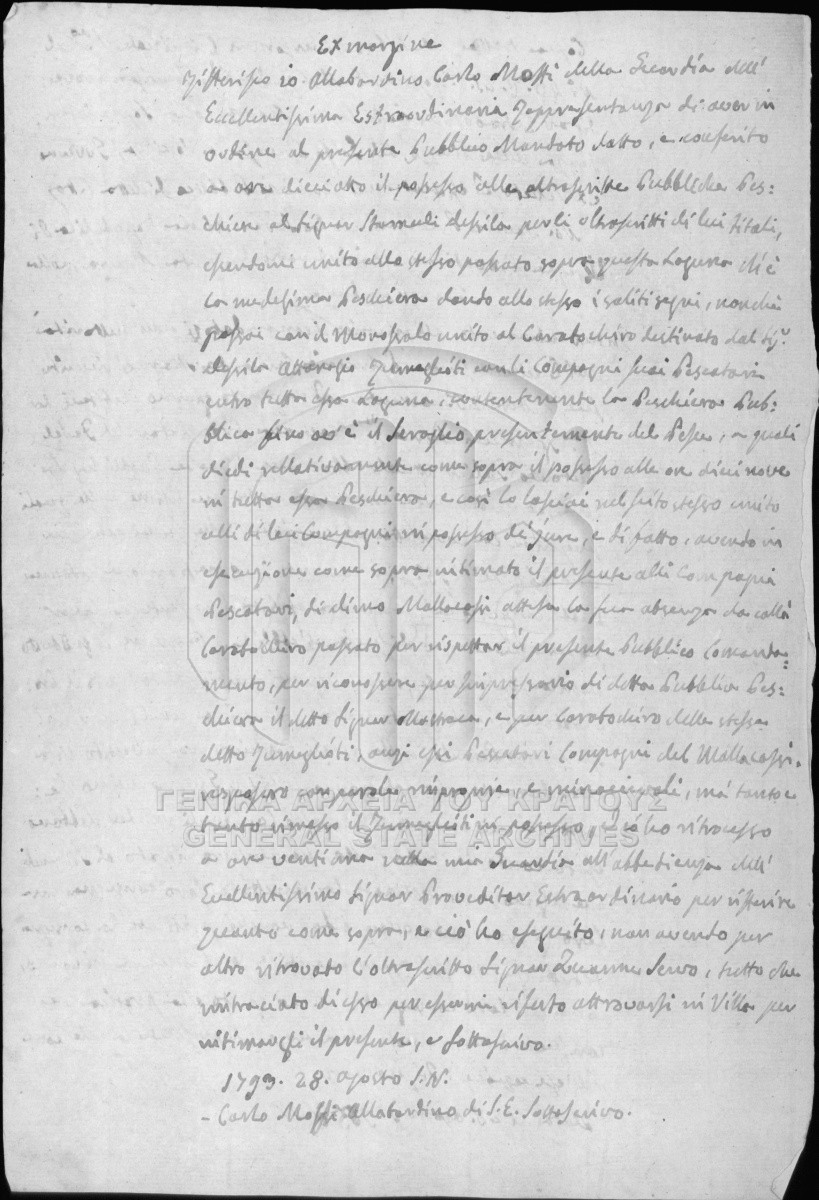 Ex margine
Rifferisco io Allabardino Carlo Mossi della Guardia dell'
Eccellentissima Estraordinaria Rappresentanza di aver in
ordine al presente Pubblico Mandato datto, e conferito
a ore dicciotto il possesso alla oltrascritta Pubblica Pes:
chiera al Signor Stamuli per li oltrascritti di lui titoli,
essendomi unito allo stesso passato sopra questa Laguna ch'è
la medesima Peschiera dando allo stesso i soliti segni, nonchè
passai con il Monossalo unito al Carabochiro destinato dal Sigr.
con li Compagni suoi Pescatori
entro tutta essa Laguna, contenente la Peschiera Pub:
blica fino ov'è il Seraglio presentemente del Pesce, a quali
diedi rellativamente come sopra il possesso alle ore diecinove
in tutta essa Peschiera, e così lo lasciai nel sito stesso unito
alli di lui Compagni in possesso de jure, e di fatto, avendo in
essecuzione come sopra intimato il presente alli Compagni
Pescatori, di Dimo Mallacassi attesa la sua absenza da colà
Carabochiro passato per rispettar il presente Pubblico Comanda:
mento, per riconoscere per Impressario di detta Pubblica Pes:
chiera il detto Signor Mastraca, e per Carabochiro della stessa
detto, anzi essi Pescatori Compagni del Mallacassi
risposero con parole improprie, e minacievoli, mà tanto e
tanto rimesso il in possesso, e ciò ho ritrocesso
a ore ventiuna nella mia Guardia all'abbedienza dell'
Eccellentissimo Signor Proveditor Estraordinario per rifferire
quanto come sopra, e ciò ho eseguito, non avendo per
altro ritrovato l'oltrascritto Signor Zuanne Servo, tutto che
rintraciato di esso per essermi riferto attrovarsi in Villa per
intimargli il presente, e sottoscrivo.
1799. 28. Agosto S.N.
- Carlo Mossi Allabardino di S.E. Sottoscrivo.
ΓΕΝΙΚΑ ΑΡΧΕΙΑ ΤΟΥ ΚΡΑΤΟΥΣ
GENERAL STATE ARCHIVES